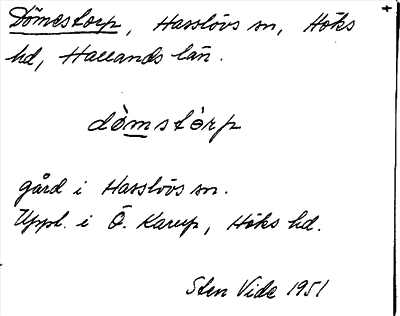 Dömestorp, Hasslövs sn, Höks
hd, Hallands län.
dò̀mstòrp
gård i Hasslövs sn.
Uppl. i Ö. Karup, Höks hd.
Sten Vide 1951